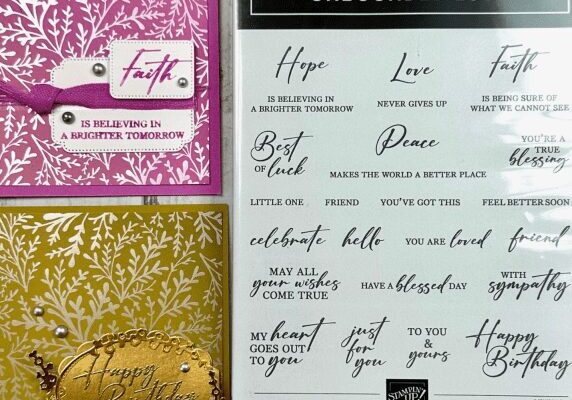 Faith
IS BELIEVING IN
A BRIGHTER TOMORROW
Happy
Birthday
Hope
IS BELIEVING IN
A BRIGHTER TOMORROW
Love
NEVER GIVES UP
Faith
IS BEING SURE OF
WHAT WE CANNOT SEE
Best
OF luck
Peace
MAKES THE WORLD A BETTER PLACE
YOU'RE A
TRUE
blessing
LITTLE ONE
FRIEND
YOU'VE GOT THIS
FEEL BETTER SOON
celebrate
hello
YOU ARE loved
friend
MAY ALL
your wishes
COME TRUE
HAVE A blessed DAY
WITH
sympathy
MY heart
GOES OUT
TO you
just
for
you
TO YOU
&
yours
Happy
Birthday
STAMPIN' UP!